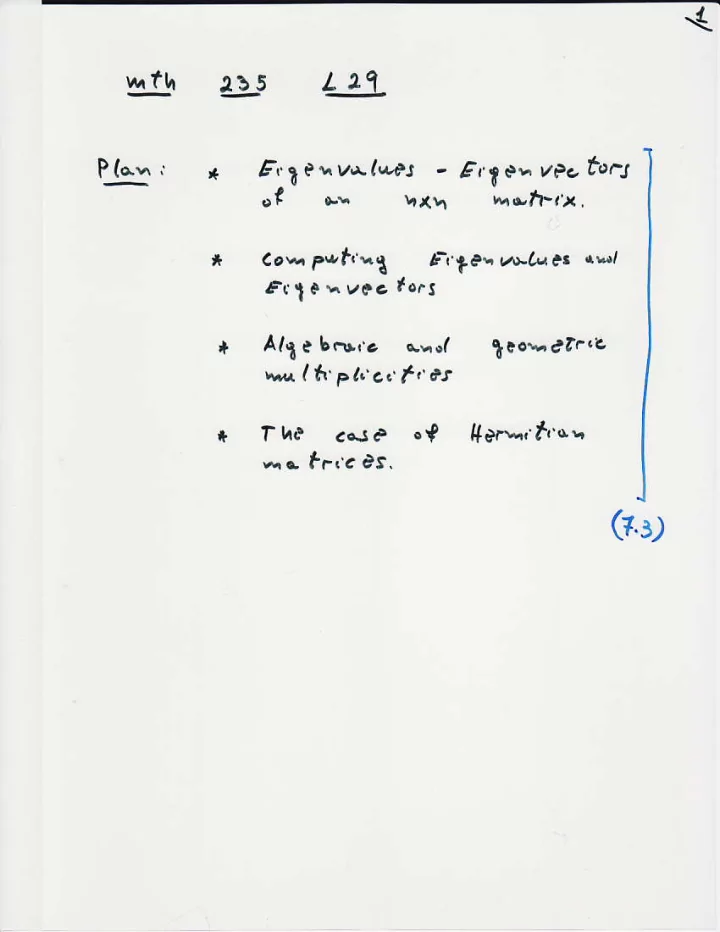 1
mth 235 L29
Plan: * Eigenvalues - Eigenvectors
of an nxn matrix.
* Computing Eigenvalues and
Eigenvectors
* Algebraic and geometric
multiplicities
* The case of Hermitian
matrices.
(7.3)